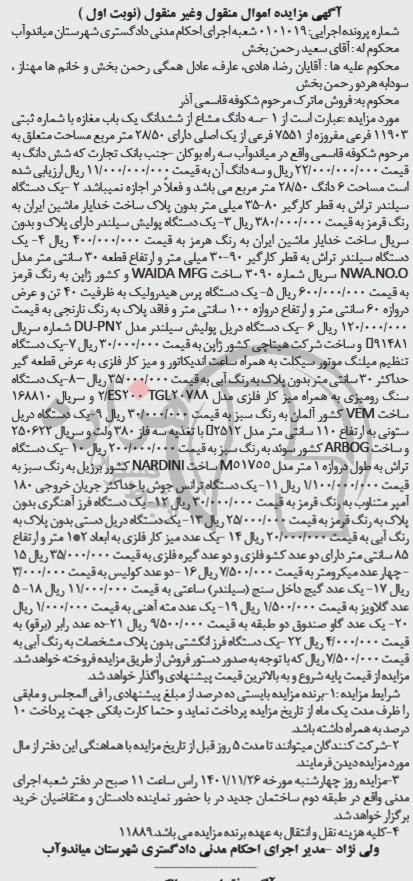 آگهی مزایده اموال منقول وغیر منقول (نوبت اول )
شماره پرونده اجرایی: ۰۱۰۱۰۱۹ شعبه اجرای احکام مدنی دادگستری شهرستان میاندوآب
محکوم له : آقای سعید رحمن بخش
محکوم علیه ها : آقایان رضا، هادی، عارف، عادل همگی رحمن بخش و خانم ها مهناز ،
سودابه هر دو رحمن بخش
محکوم به: فروش ماترک مرحوم شکوفه قاسمی آذر
مورد مزایده :عبارت است از ۱ –سه دانگ مشاع از ششدانگ یک باب مغازه با شماره ثبتی
۱۱۹۰۳ فرعی مفروزه از ۷۵۵۱ فرعی از یک اصلی دارای ۲۸/۵۰ متر مربع مساحت متعلق به
مرحوم شکوفه قاسمی واقع در میاندوآب سه راه بوکان –جنب بانک تجارت که شش دانگ به
قیمت ۲۲/۰۰۰/۰۰۰/۰۰۰ ریال و سه دانگ آن به قیمت ۱۱/۰۰۰/۰۰۰/۰۰۰ ریال ارزیابی شده
است مساحت ۶ دانگ ۲۸/۵۰ متر مربع می باشد و فعلاً در اجازه نمیباشد. ۲ –یک دستگاه
سیلندر تراش به قطر کارگیر ۸۰–۳۵ میلی متر بدون پلاک ساخت خدایار ماشین ایران به
رنگ قرمز به قیمت ۳۸۰/۰۰۰/۰۰۰ ریال ۳– یک دستگاه پولیش سیلندر دارای پلاک و بدون
سریال ساخت خدایار ماشین ایران به رنگ هرمز به قیمت ۴۰۰/۰۰۰/۰۰۰ ریال ۴– یک
دستگاه سیلندر تراش به قطر کارگیر ۹۰–۳۰ میلی متر و ارتفاع قطعه ۳۰ سانتی متر مدل
NWA.NO.O سریال شماره ۳۰۹۰ ساخت WAIDA MFG و کشور ژاپن به رنگ قرمز
به قیمت ۶۰۰/۰۰۰/۰۰۰ ریال ۵– یک دستگاه پرس هیدرولیک به ظرفیت ۴۰ تن و عرض
دروازه ۶۰ سانتی متر و ارتفاع دروازه ۱۰۰ سانتی متر و فاقد پلاک به رنگ نارنجی به قیمت
۱۲۰/۰۰۰/۰۰۰ ریال ۶ –یک دستگاه دریل پولیش سیلندر مدل DU-PN۲ شماره سریال
۹۱۴۸۱ و ساخت شرکت هیتاچی کشور ژاپن به قیمت ۳۰/۰۰۰/۰۰۰ ریال ۷–یک دستگاه
تنظیم میلنگ موتور سیکلت به همراه ساعت اندیکاتور و میز کار فلزی به عرض قطعه گیر
حداکثر ۳۰ سانتی متر بدون پلاک به رنگ آبی به قیمت ۳۵/۰۰۰/۰۰۰ ریال –۸– یک دستگاه
سنگ رومیزی به همراه میز کار فلزی مدل ۲/ES۲۰۰ TGL۲۰۷۸۸ و سریال ۱۶۸۸۱۰
ساخت VEM کشور آلمان به رنگ سبز به قیمت ۳۰/۰۰۰/۰۰۰ ریال ۹– یک دستگاه دریل
ستونی به ارتفاع ۱۱۰ سانتی متر مدل ۲۵۱۲ با تغذیه سه فاز ۳۸۰ ولت و سریال ۲۵۰۶۲۳
و ساخت ARBOG کشور سوئد به رنگ سبز به قیمت ۲۰۰/۰۰۰/۰۰۰ ریال ۱۰– یک دستگاه
تراش به طول دروازه ۱ متر مدل M۵۱۷۵۵ ساخت NARDINI کشور برزیل به رنگ سبز به
قیمت ۱/۱۰۰/۰۰۰/۰۰۰ ریال ۱۱– یک دستگاه ترانس جوش با حداکثر جریان خروجی ۱۸۰
آمپر متناوب به رنگ قرمز به قیمت ۳۰/۰۰۰/۰۰۰ ریال ۱۲– یک دستگاه فرز آهنگری بدون
پلاک به رنگ قرمز به قیمت ۲۵/۰۰۰/۰۰۰ ریال ۱۳– یک دستگاه دریل دستی بدون پلاک به
رنگ آبی به قیمت ۲۰/۰۰۰/۰۰۰ ریال ۱۴ –یک عدد میز کار فلزی به ابعاد ۲*۱ متر و ارتفاع
۸۵ سانتی متر دارای دو عدد کشو فلزی و دو عدد گیره فلزی به قیمت ۳۵/۰۰۰/۰۰۰ ریال ۱۵
– چهار عدد میکرومتر به قیمت ۷/۵۰۰/۰۰۰ ریال ۱۶ –دو عدد کولیس به قیمت ۳/۰۰۰/۰۰۰
ریال ۱۷– یک عدد گیج داخل سنج (سیلندر) ساعتی به قیمت ۱۱/۰۰۰/۰۰۰ ریال ۱۸– ۵
عدد گلاویز به قیمت ۱/۵۰۰/۰۰۰ ریال ۱۹– یک عدد مته آهنی به قیمت ۱/۰۰۰/۰۰۰ ریال
۲۰– یک عدد گاو صندوق دو طبقه به قیمت ۹/۵۰۰/۰۰۰ ریال ۲۱–ده عدد رابر (برقو) به
قیمت ۴/۰۰۰/۰۰۰ ریال ۲۲ –یک دستگاه فرز انگشتی بدون پلاک مشخصات به رنگ آبی به
قیمت ۷/۵۰۰/۰۰۰ ریال که با توجه به صدور دستور فروش از طریق مزایده فروخته خواهد شد.
مزایده از قیمت پایه شروع و به بالاترین قیمت پیشنهادی واگذار خواهد شد.
شرایط مزایده :۱–برنده مزایده بایستی ده درصد از مبلغ پیشنهادی را فی المجلس و مابقی
را ظرف مدت یک ماه از تاریخ مزایده پرداخت نماید و حتما کارت بانکی جهت پرداخت ۱۰
درصد به همراه داشته باشد.
۲–شرکت کنندگان میتوانند تا مدت ۵ روز قبل از تاریخ مزایده با هماهنگی این دفتر از مال
مورد مزایده دیدن فرمایند.
۳–مزایده روز چهارشنبه مورخه ۱۴۰۱/۱۱/۲۶ راس ساعت ۱۱ صبح در دفتر شعبه اجرای
مدنی واقع در طبقه دوم ساختمان جدید در با حضور نماینده دادستان و متقاضیان خرید
برگزار خواهد شد.
۴–کلیه هزینه نقل و انتقال به عهده برنده مزایده می باشد.۱۱۸۸۹
ولی نژاد –مدیر اجرای احکام مدنی دادگستری شهرستان میاندوآب